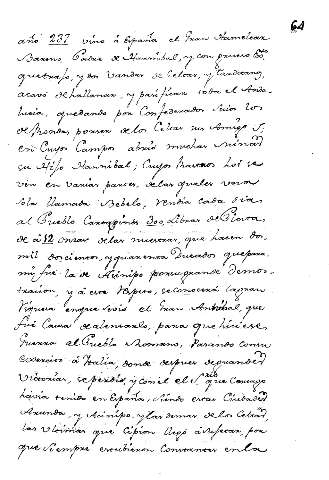 64
año 237 vino á España el Gran Hamilcar
Barcino Padre de Hannibal, y con grueso Exº
que trajo, y dos vandas de Celtas, y Turdetanos,
acavó de allanar, y pacificar toda el Anda-
lucia, quedando por Confederados suios los
de Ronda, por ser de los Celtas sus Amigos,
en Cuyos Campos abrió muchas Minas
su Hijo Hannibal; Cuyos Rastros hoi se
ven en varias partes, de las quales una
sola llamada Bebelo, rendia cada dia
al Pueblo Cartaginés 300 Libras de Plata,
de á 12 onzas de las nuestras, que hacen dos
mil docientos, y quarenta Ducados
fué la de Acinipo por su grande demos-
tracion, y á este respeto, se conocerá la gran
riqueza en que se vió el Gran Anibal, que
fué Causa de alentarlo, para que hiciese
Guerra al Pueblo Romano, Pasando con su
exercito á Italia, donde despues de grandes
Victorias, se perdió, y con él el Sºrio que Cartago
havia tenido en España, siendo estas Ciudades
Arunda, y Acinipo, y las demas de los Celtas,
las Ultimas que Cipion llegó á sujetar, por
que siempre estubieron Constantes en la